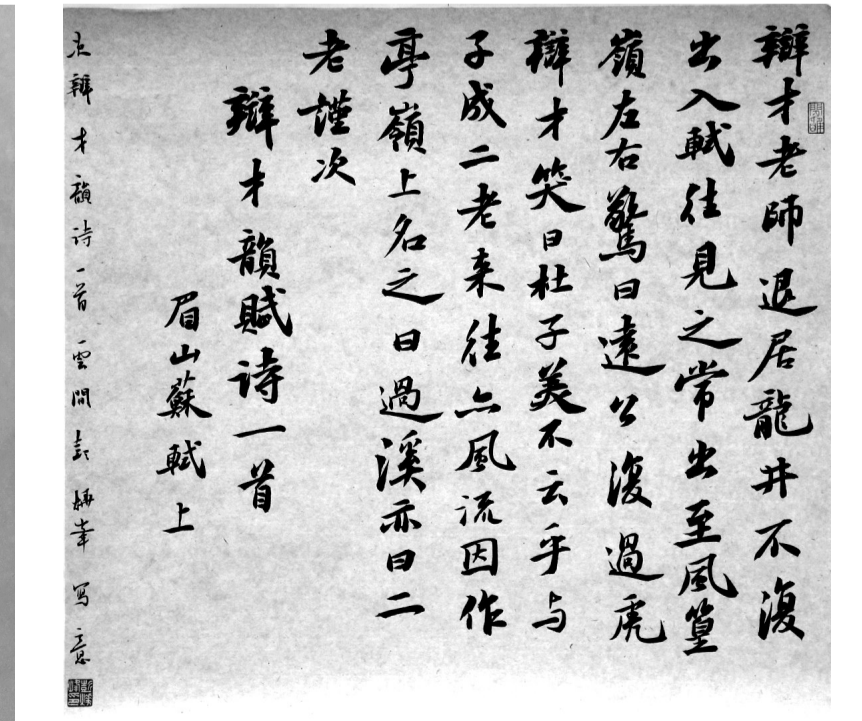 辯才老師退居龍井不復
出入軾往見之常出至風篁
嶺左右驚曰遠公復過虎
辯才笑曰杜子美不云乎与
子成二老来往亦風流因作
亭嶺上名之曰過溪亦曰二
老謹次
辯才韻賦詩一首
眉山蘇軾上
右辯才韻詩一首雲間彭楊峯写意